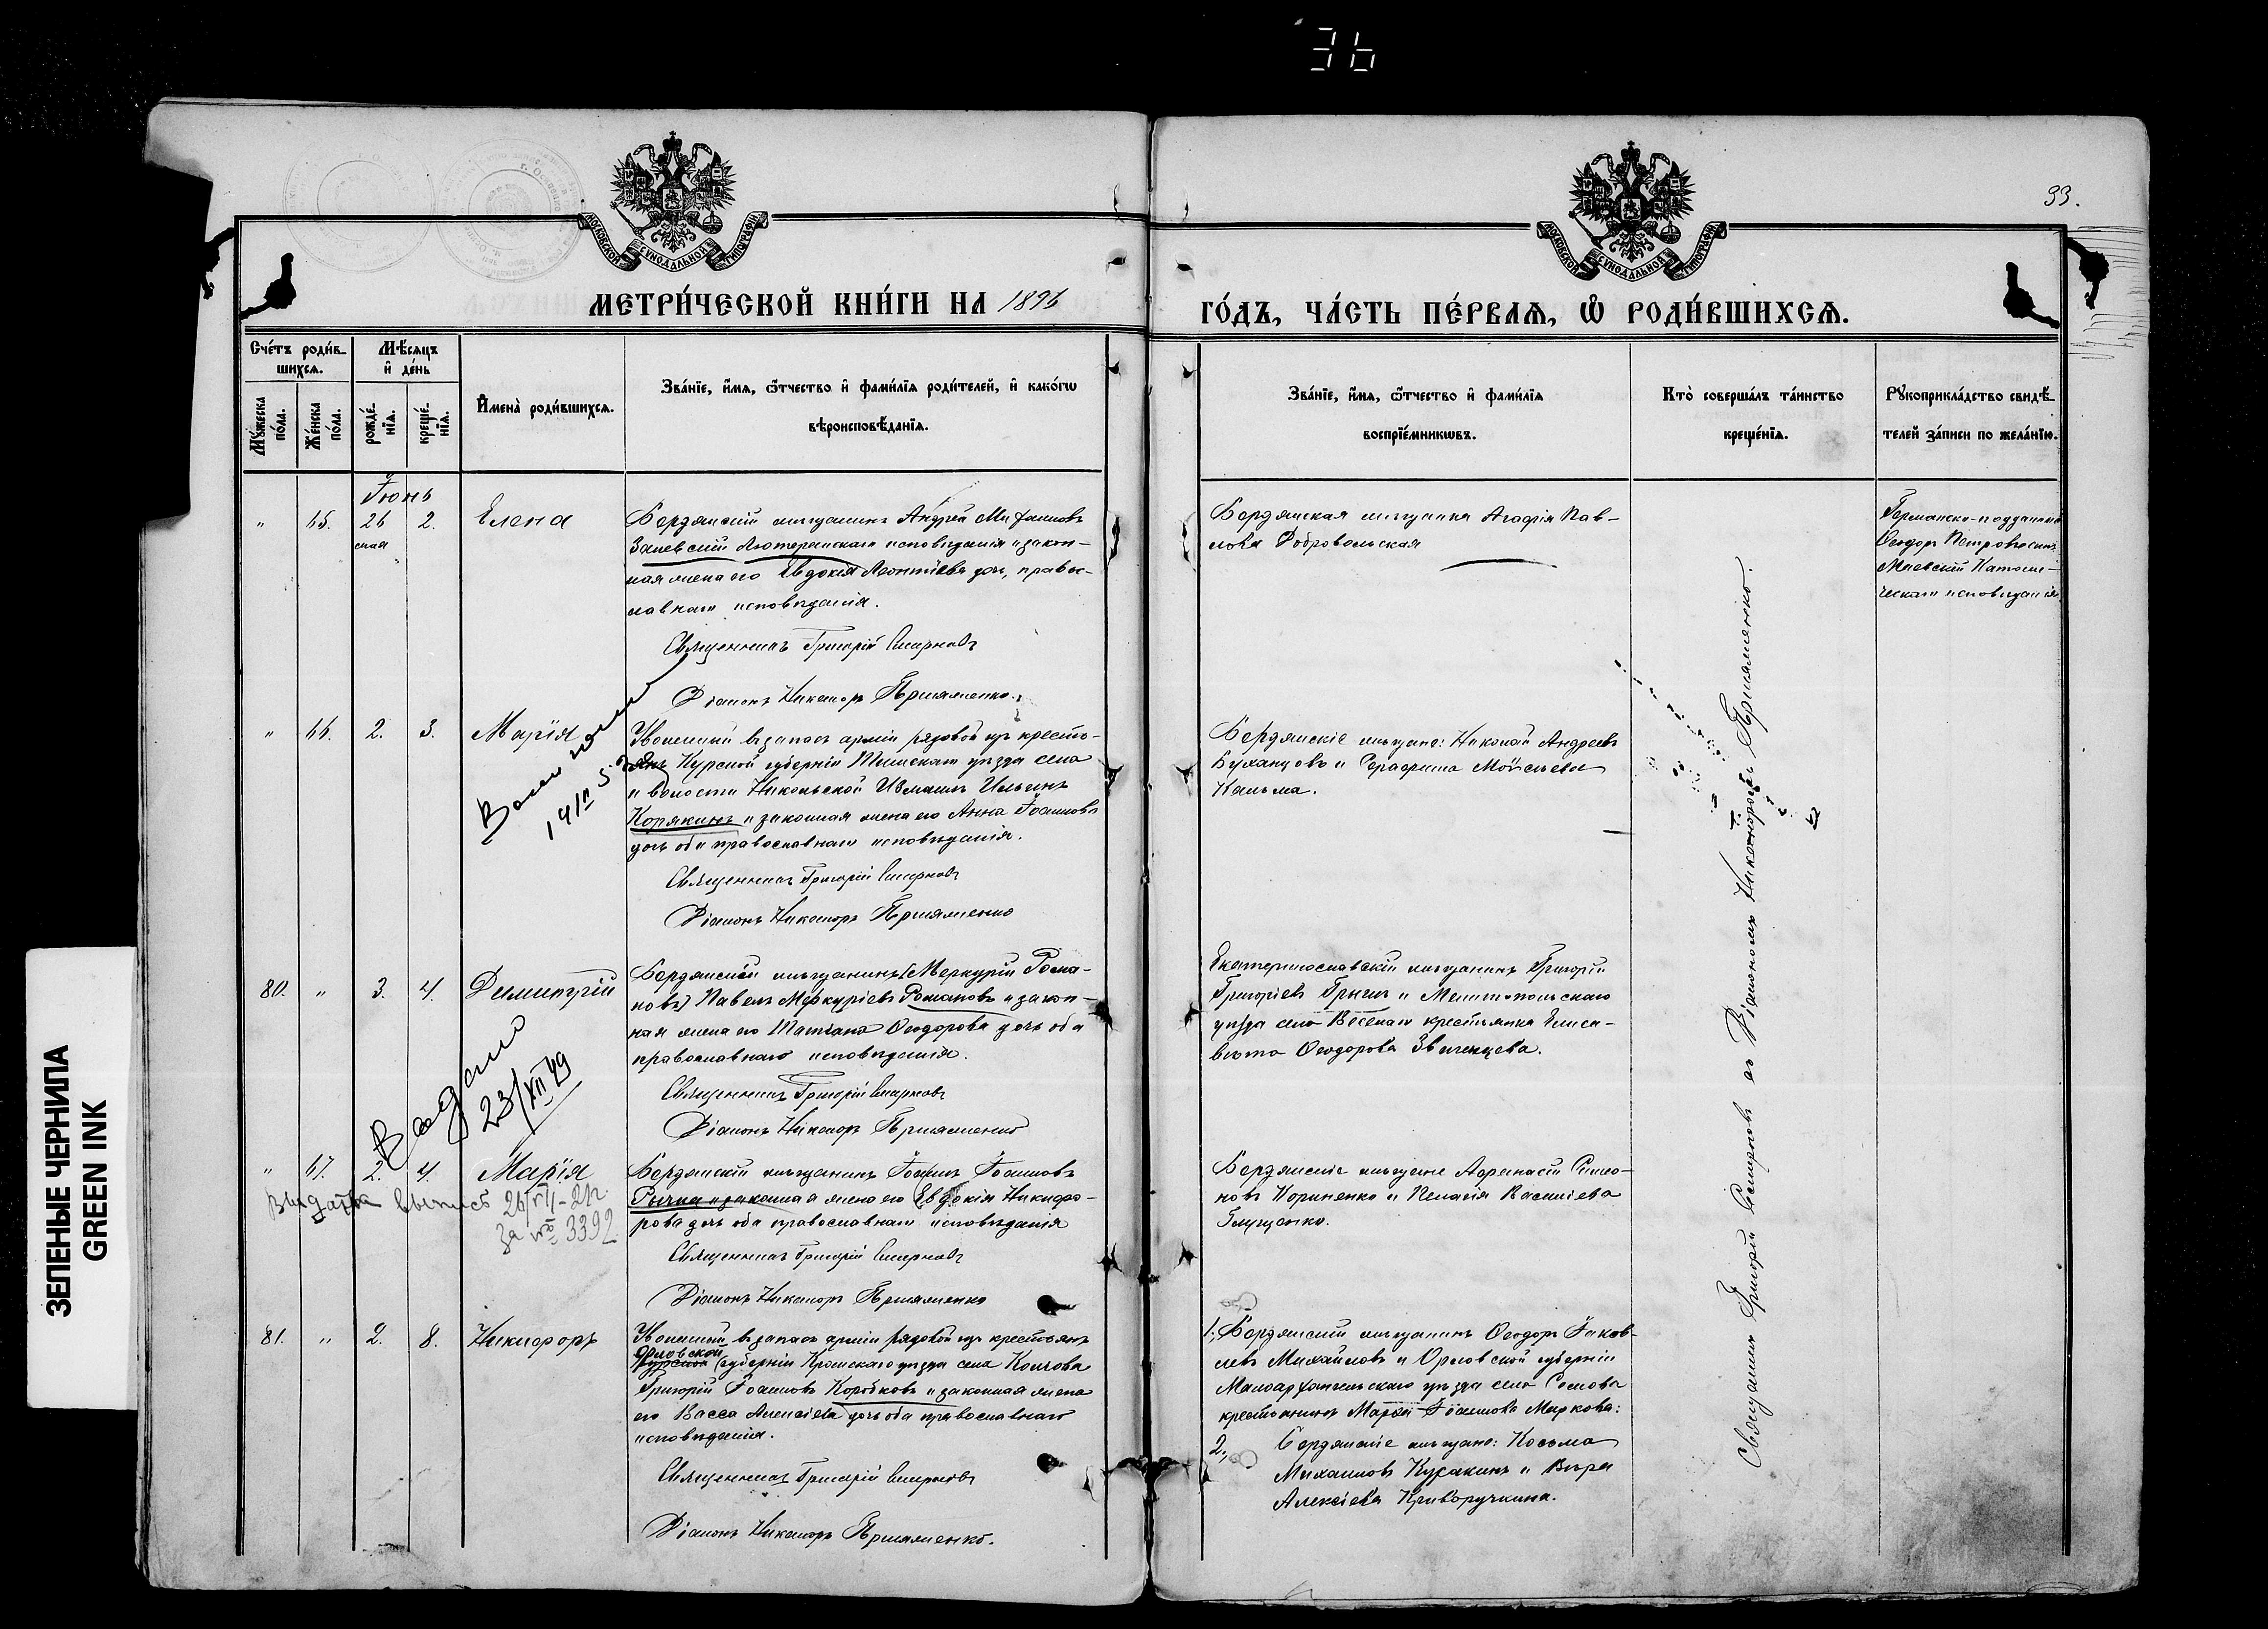 36
33.
МОСКОВСКОЙ СѴНОДАЛЬНОЙ ТИПОГРАФІИ
МОСКОВСКОЙ СѴНОДАЛЬНОЙ ТИПОГРАФІИ
МЕТРИ́ЧЕСКОЙ КНИ́ГИ НА 1896
ГО́ДЪ, ЧА́СТЬ ПЕ́РВАѦ, Ѽ РОДИ́ВШИХСѦ.
Сче́тъ роди́в-
шихсѧ.
Мѣ́сяцъ
и҆ де́нь
Мꙋ́жеска
по́ла.
Же́нска
по́ла.
рожде́-
нїѧ.
креще́-
нїѧ.
И҆мена̀ роди́вшихсѧ.
Зва́нїе, и҆́мѧ, ѻ҆́тчество и҆ фами́лїѧ роди́телей, и҆ како́гѡ
вѣроисповѣ́данїѧ.
Зва́нїе, и҆́мѧ, ѻ҆́тчество и҆ фами́лїѧ
воспрїе́мникѡвъ.
Кто̀ соверша́лъ та́инство
креще́нїѧ.
Рꙋкоприкла́дство свидѣ́-
телей за́писи по жела́нїю.
Іюнь
" 65. 26 2. Елена
мая
Бердянскій мѣщанинъ Андрей
Заневскій Лютеранскаго исповѣданія и закон-
ная жена его Евдокія Леонтіева дочь, право-
славнаго исповѣданія.
Священникъ Григорій Смирновъ
Діаконъ Никаноръ Пріяменко.
Бердянская мѣщанка Агафія Пав-
лова Добровольская
Германско-подданный
Ѳеодоръ Петровъ сынъ
Маевскій Католи-
ческаго исповѣданія
" 66. 2. 3. Марія
14/II 5
Уволенный въ запасъ арміи рядовой изъ кресть-
янъ Курской губерніи Тимскаго уѣзда села
и волости Никольской Измаилъ Ильинъ
Корякинъ и законная жена его Анна Іоаннова
дочь оба православнаго исповѣданія.
Священникъ Григорій Смирновъ
Діаконъ Никаноръ Пріяменко
Бердянскіе мѣщане: Николай Андреевъ
Буханцовъ и Серафима Мойсѣева
Кальма.
80. " 3. 4. Димитрій
Выдано
23/XII 49
Бердянскій мѣщанинъ (Меркурій Рома-
новъ) Павелъ Меркуріевъ Романовъ и закон-
ная жена его Татіана Ѳеодорова дочь оба
православнаго исповѣданія.
Священникъ Григорій Смирновъ
Діаконъ Никаноръ Пріяменко
Екатеринославскій мѣщанинъ Григорій
Григоріевъ и Мелитопольскаго
уѣзда села Веселаго крестьянка Елиса-
вета Ѳеодорова Звягинцева.
" 67. 2. 4. Марія
Выдана выпись 26/VII-21г.
за № 3392
Бердянскій мѣщанинъ Іоаннъ Іоанновъ
и законная жена его Евдокія Никифо-
рова дочь оба православнаго исповѣданія
Священникъ Григорій Смирновъ
Діаконъ Никаноръ Пріяменко
Бердянскіе мѣщане Афанасій Симео-
новъ Кориненко и Пелагія Василіева
Глущенко.
81. " 2. 8. Никифоръ
Уволенный въ запасъ арміи рядовой изъ крестьянъ
Орловской
Курской губерніи Кромскаго уѣзда села
Григорій Іоанновъ Коробковъ и законная жена
его Васса Алексіева дочь оба православнаго
исповѣданія.
Священникъ Григорій Смирновъ
Діаконъ Никаноръ Пріяменко.
1, Бердянскій мѣщанинъ Ѳеодоръ Іаков-
левъ Михайловъ и Орловской губерніи
Малоархангельскаго уѣзда села Сомова
крестьянка Марія Іоаннова Маркова:
2, Бердянскіе мѣщане: Косьма
Михаиловъ Куракинъ и Вѣра
Алексіева Криворучкина.
Священникъ Григорій Смирновъ съ Діакономъ Никаноромъ Пріяменко.
ЗЕЛЕНЫЕ ЧЕРНИЛА
GREEN INK